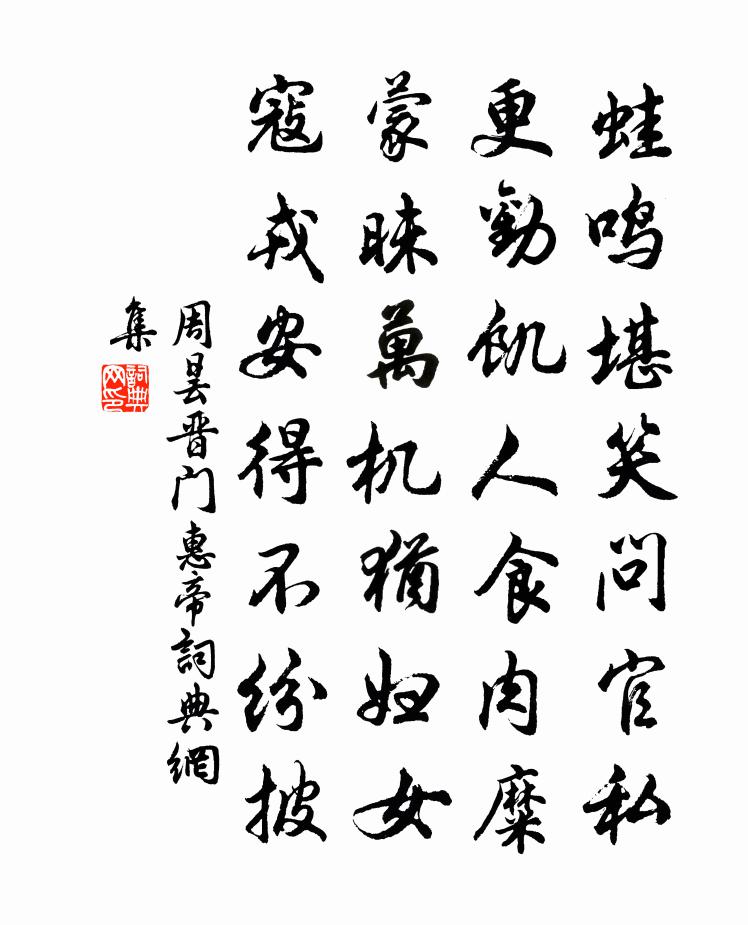 蛙鸣堪笑问官私
更勸飢人食肉糜
蒙昧萬机猶妇女
寇戎安得不纷披
周昙晋门惠帝詞典網
集
詞典网印